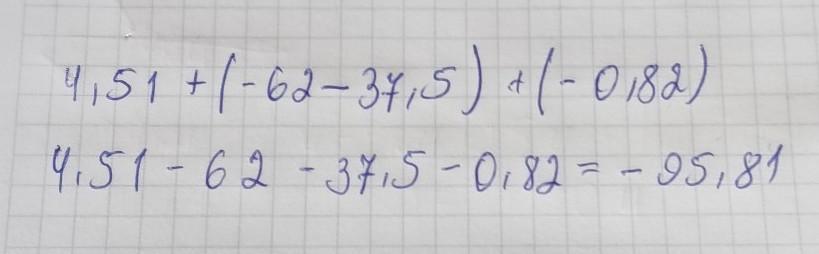 4,51 + (-62 - 37,5) + (-0,82)
4,51 - 62 - 37,5 - 0,82 = -95,81